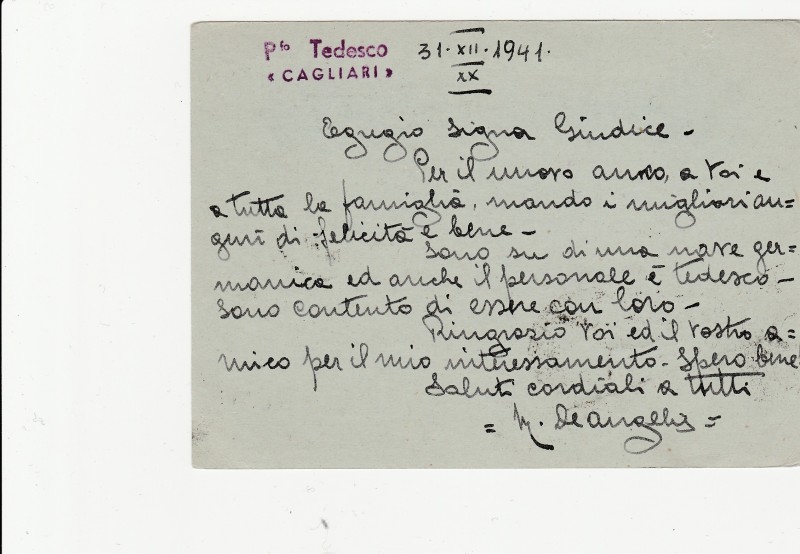 Pfo Tedesco
« CAGLIARI »
31·XII·1941·
XX
Egregio Signor Giudice -
Per il nuovo anno, a Voi e
a tutta la famiglia, mando i migliori au=
guri di felicità e bene -
Sono su di una nave ger=
manica ed anche il personale è tedesco -
Sono contento di essere con loro -
Ringrazio Voi ed il Vostro a=
mico per il mio interessamento - Spero bene!
Saluti cordiali a tutti
= De Angelis =